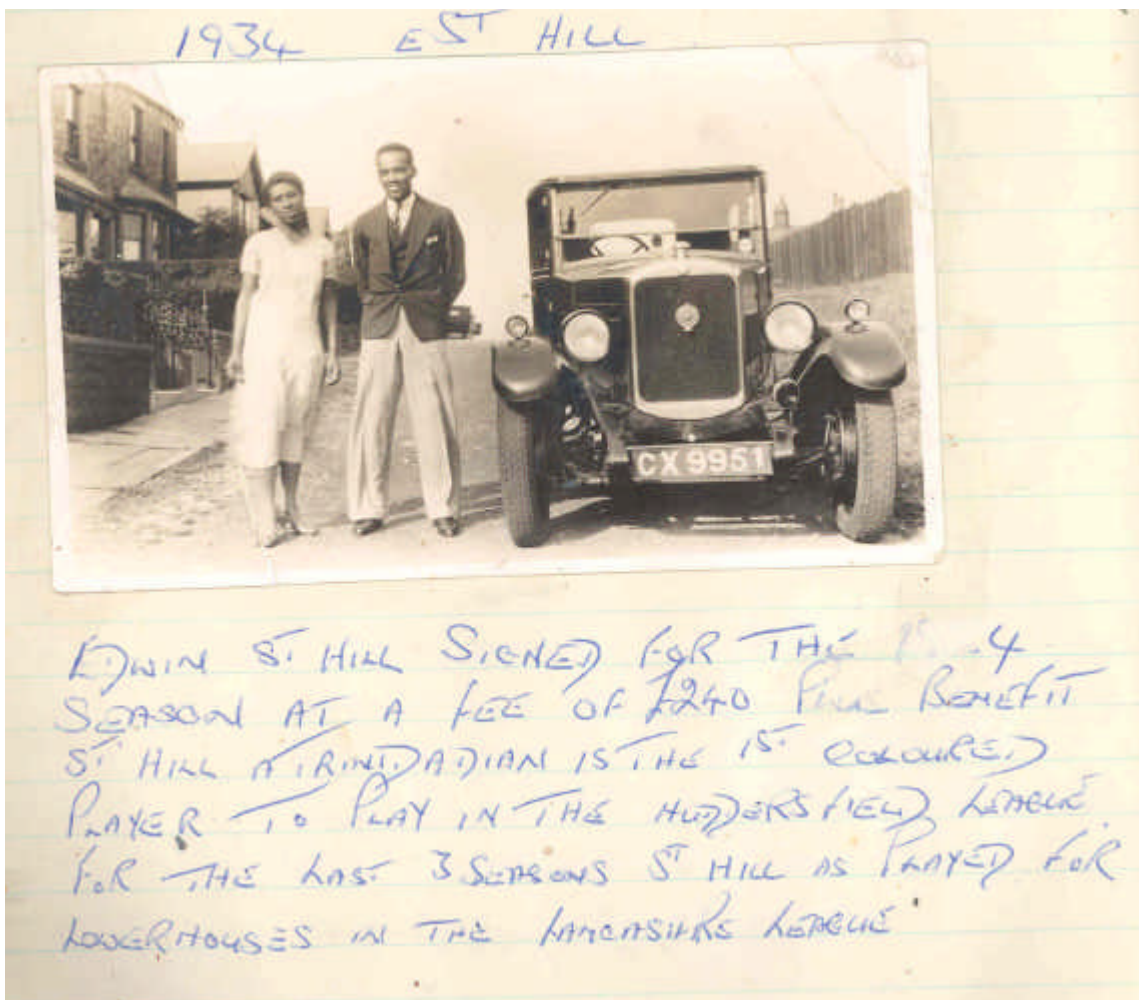 1934 E ST HILL
CX 9951
EDWIN ST HILL SIGNED FOR THE 4
SEASON AT A FEE OF £240 PLUS BENEFIT
ST HILL A TRINIDADIAN IS THE 1ST COLOURED
PLAYER TO PLAY IN THE HUDDERSFIELD LEAGUE
FOR THE LAST 3 SEASONS ST HILL AS PLAYED FOR
LOWERHOUSES IN THE LANCASHIRE LEAGUE